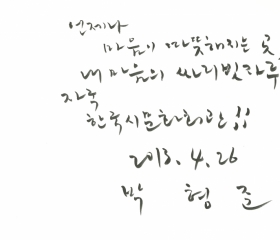 언제나
마음이 따뜻해지는 곳
내 마음의 싸리빗자루
자국
한국시문화회관!!
2013. 4. 26
박 형 준